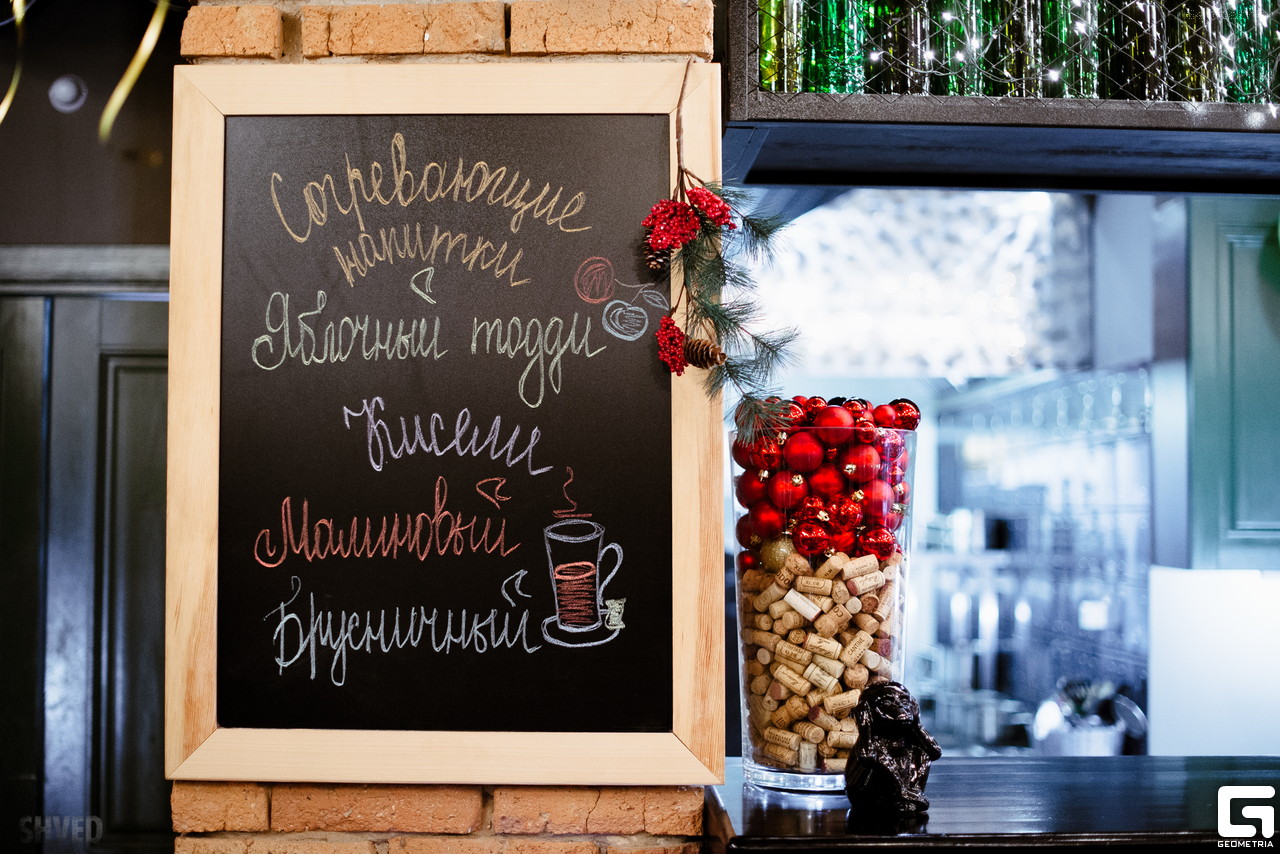 Согревающие
напитки
Яблочный тодди
Кисели
Малиновый
Брусничный
SHVED
GEOMETRIA